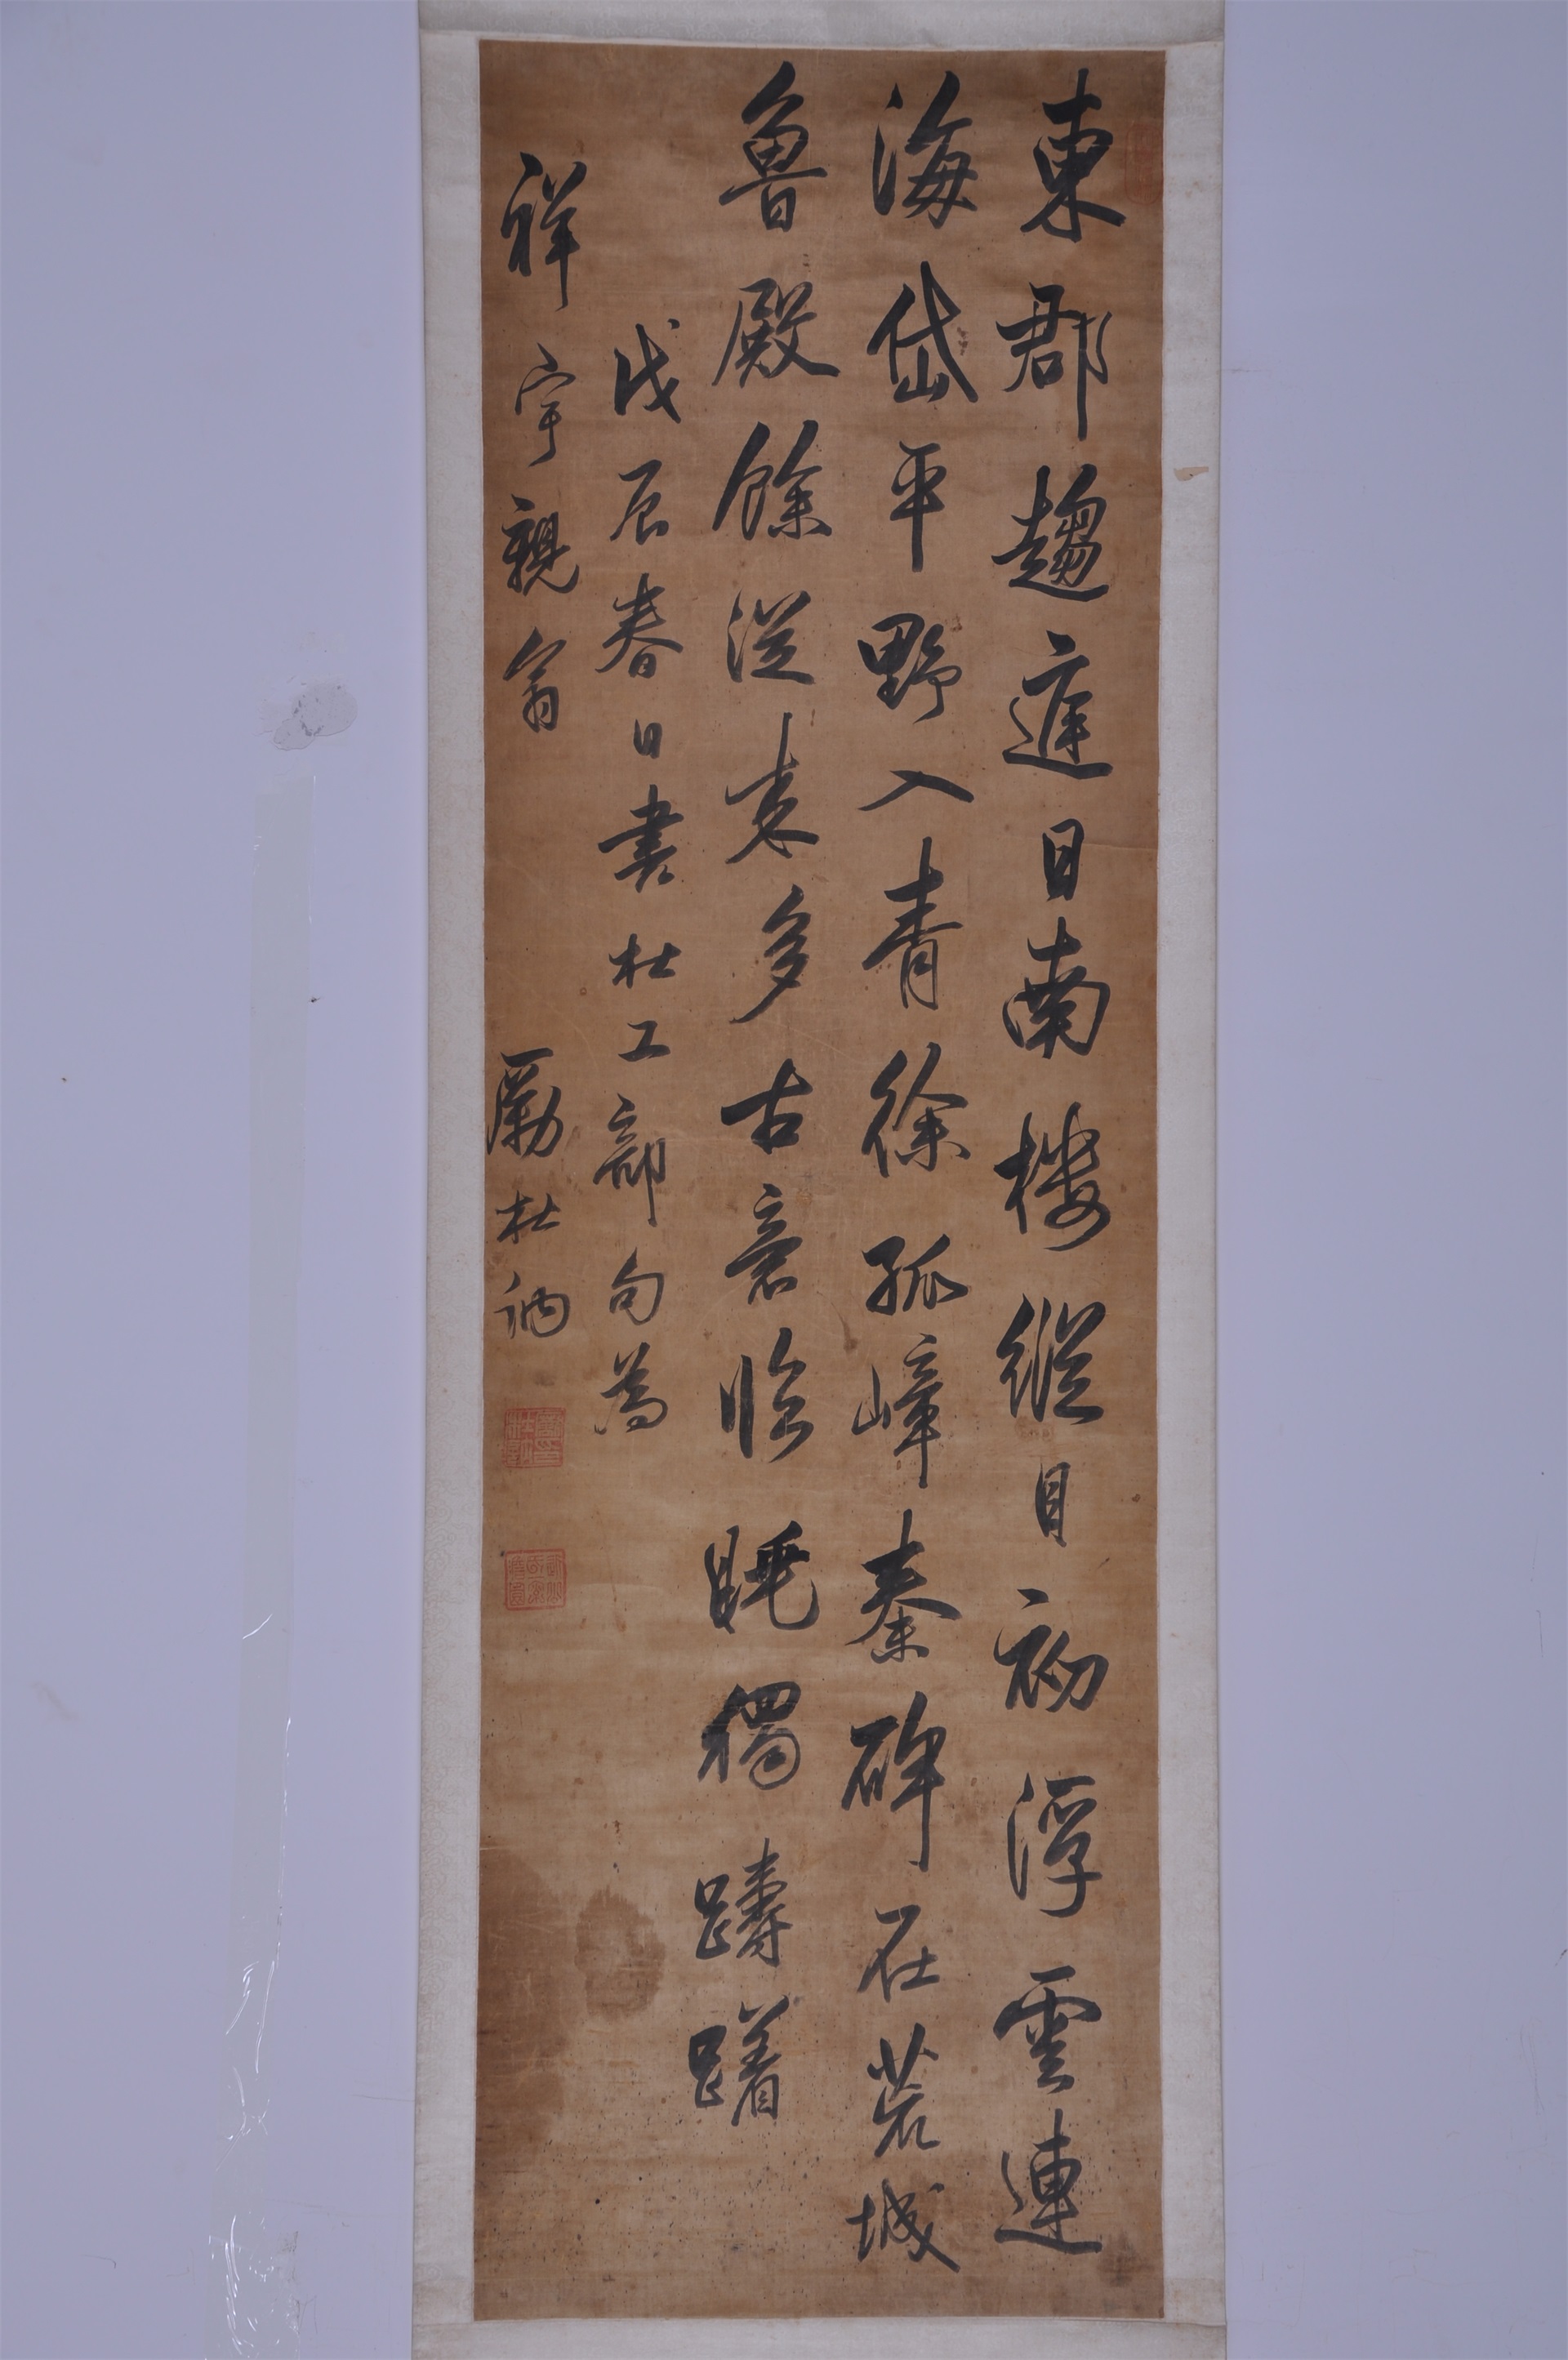 東郡趨庭日南樓縱目初浮雲連
海岱平野入青徐孤嶂秦碑在荒城
魯殿餘從來多古意臨眺獨躊躇
戊辰春日書杜工部句為
祥宇親翁
勵杜訥